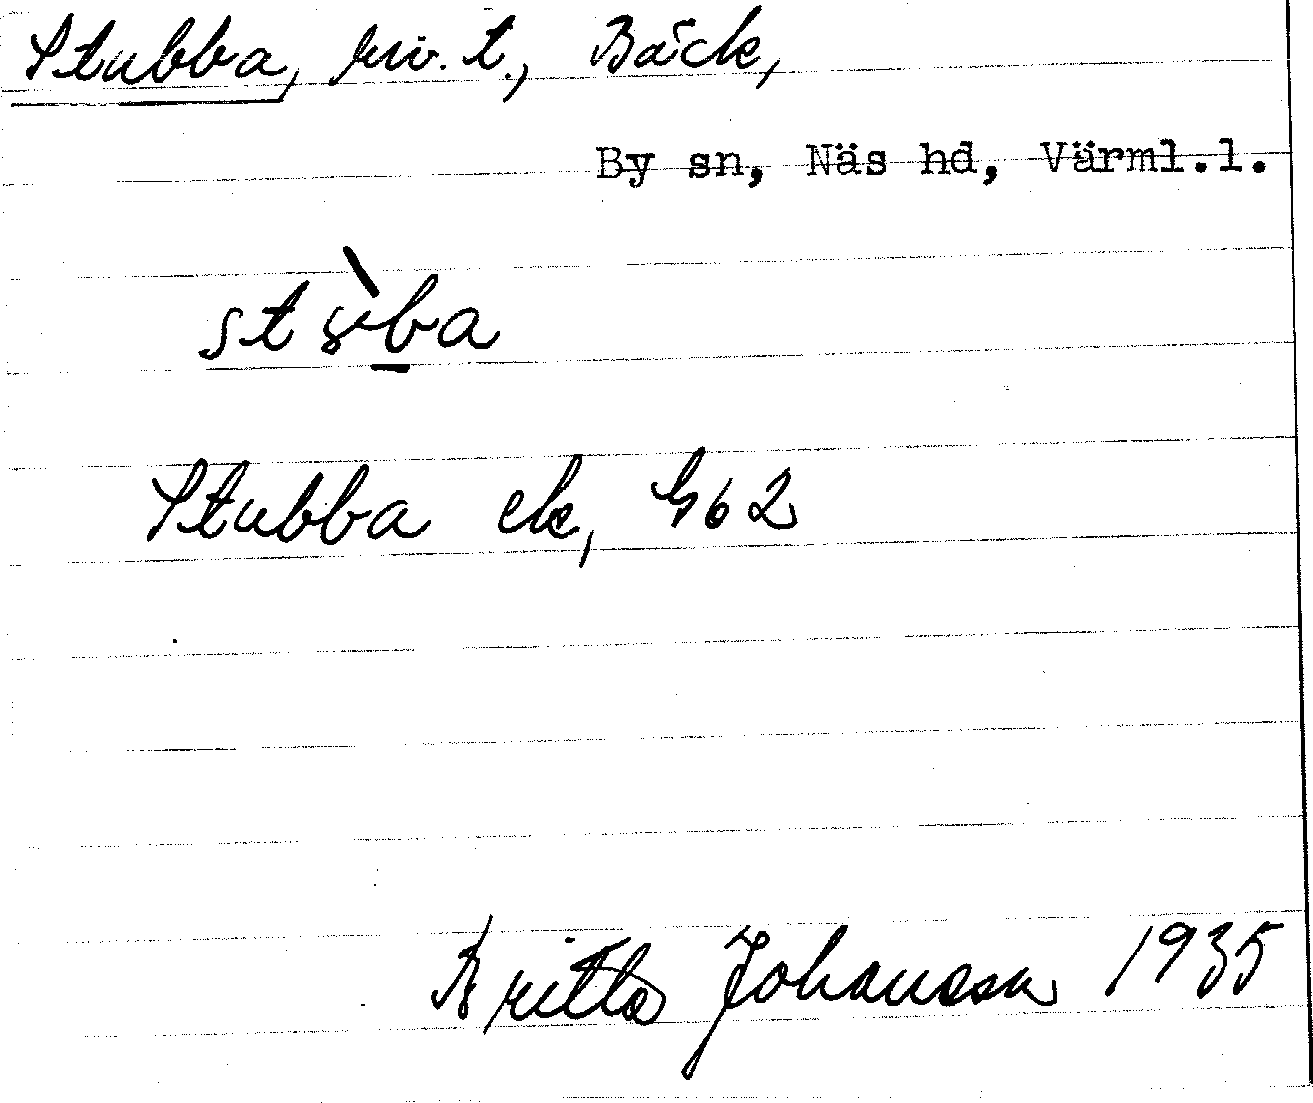 Stubba, riv. t., Bäck,
By sn, Näs hd, Värml.l.
Stubba ek, G62
Britta Johansson 1935